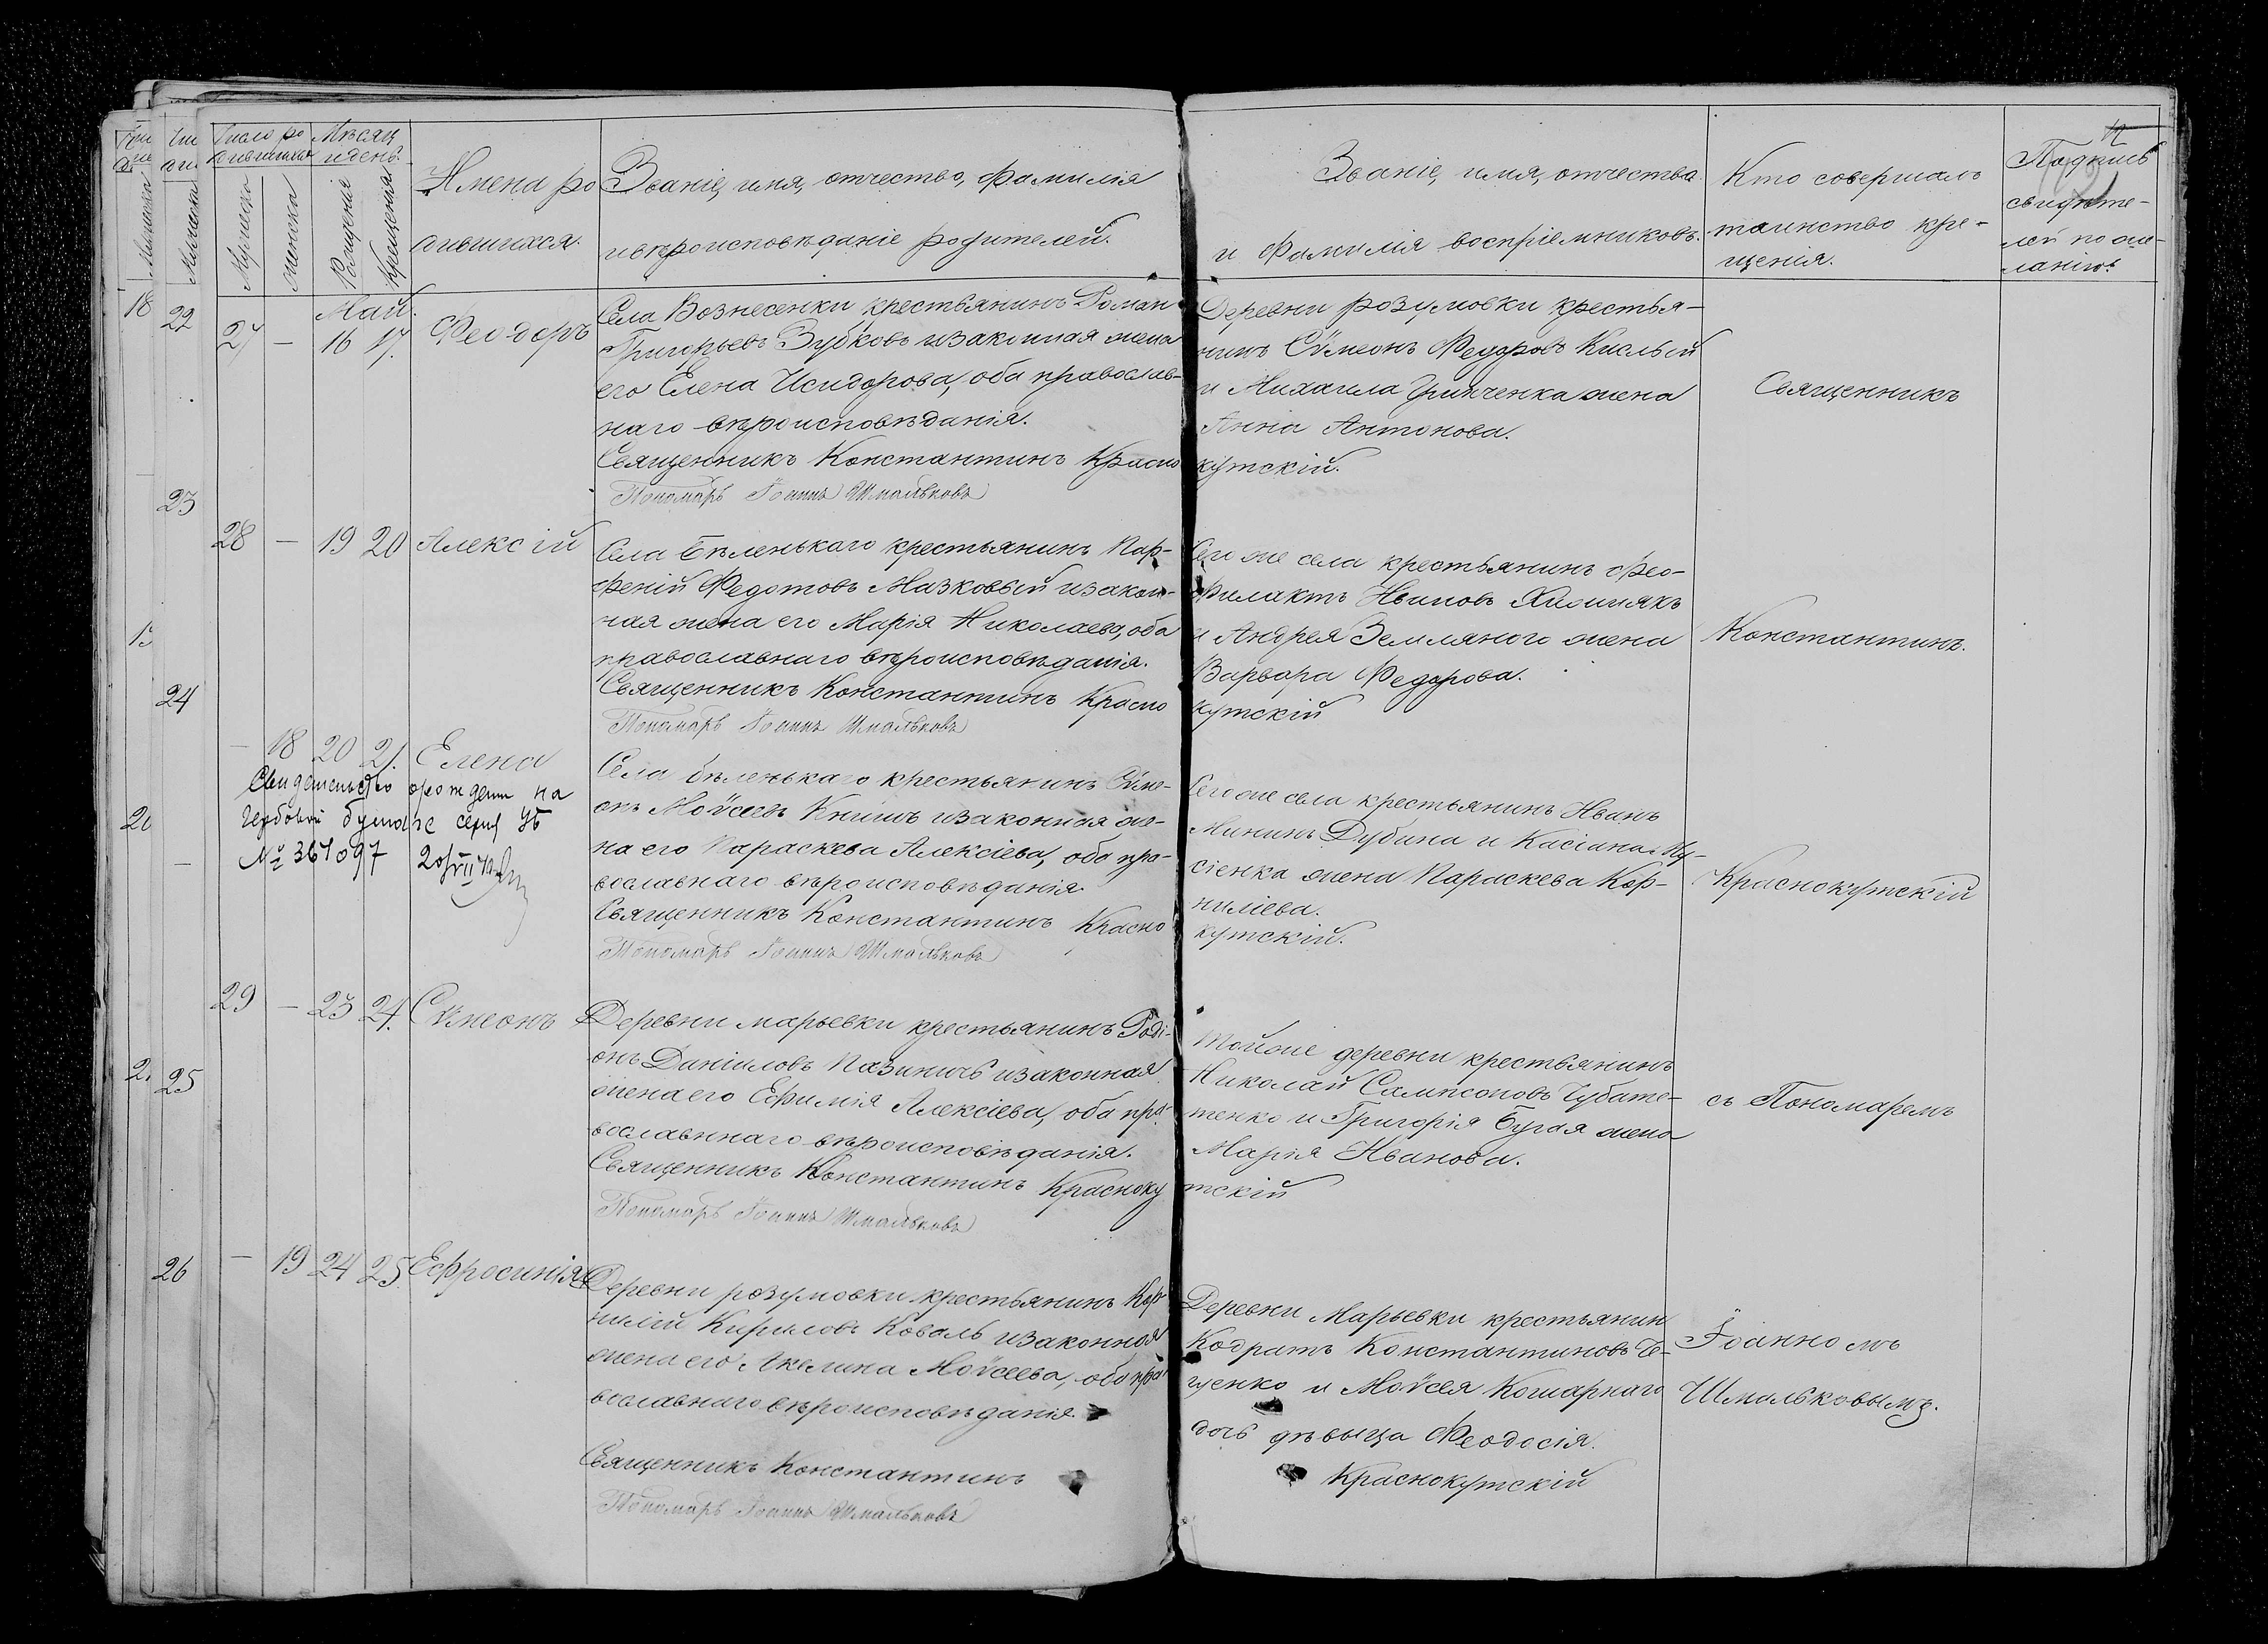 Число ро
дившихся
Мѣсяц
и день.
Мужеска
Женска
Рожденіе
Крещенія
Имена ро
дившихся.
Званіе, имя, отчество, фамилія
и вѣроисповѣданіе родителей.
Званіе, имя, отчества
и Фамилія воспріемниковъ.
Кто совершалъ
таинство кре-
щенія.
Подпись
свидѣте-
лей по же-
ланію.
18
22
23
24
25
26
Май.
27 — 16 17. Феодоръ
Села Вознесенки крестьянинъ Роман
Григорьевъ Зубковъ и законная жена
его Елена Исидорова, оба православ-
наго вѣроисповѣданія.
Священникъ Константинъ Красно
Пономарь Іоаннъ Шмальковъ
Деревни розумовки крестья-
нинъ Сѷмеонъ Федоровъ Кислый
и Михаила Гринченка жена
Анна Антонова.
кутскій.
Священникъ
28 — 19 20 Алексій
Села Бѣленькаго крестьянинъ Пар-
феній Федотовъ Мазковый и закон-
ная жена его Марія Николаева, оба
православнаго вѣроисповѣданія.
Священникъ Константинъ Красно
Пономарь Іоаннъ Шмальковъ
Сего же села крестьянинъ Фео-
филактъ Ивановъ
и Андрея Земляного жена
Варвара Федорова.
кутскій
Константинъ.
— 18 20 21. Елена
Свидетельство о рождении на
гербовой бумаге серия УБ
№ 367097
Села бѣленькаго крестьянинъ Сѷме-
онъ Моѷсеевъ Книшъ и законная же-
на его Параскева Алексіева, оба пра-
вославнаго вѣроисповѣданія.
Священникъ Константинъ Красно
Пономарь Іоаннъ Шмальковъ
Сего же села крестьянинъ Иванъ
Мининъ Дубина и Касіана Му-
сіенка жена Параскева Кор-
ниліева.
кутскій.
Краснокутскій
29 — 23 24. Сѷмеонъ
Деревни марьевки крестьянинъ Роді-
онъ Даніиловъ Пазиничъ и законная
жена его Ефимія Алексіева, оба пра-
вославннаго вѣроисповѣданія.
Священникъ Константинъ Красноку
Пономарь Іоаннъ Шмальковъ
Той же деревни крестьянинъ
Николай Сампсоновъ Чубате-
тенко и Григорія Бугая жена
Марія Иванова.
тскій
съ Пономаремъ
— 19 24 25. Ефросинія
Деревни розумовки крестьянинъ Кор-
нилій Кириловъ Коваль и законная
жена его Акелина Моѷсеева, оба пра-
вославнаго вѣроисповѣданія.
Священникъ Константинъ
Пономарь Іоаннъ Шмальковъ
Деревни Марьевки крестьянин
Кодратъ Константиновъ Е-
щенко и Моѷсея Кошарнаго
дочь дѣвыца Феодосія.
Краснокутскій
Іоанномъ
Шмальковымъ.